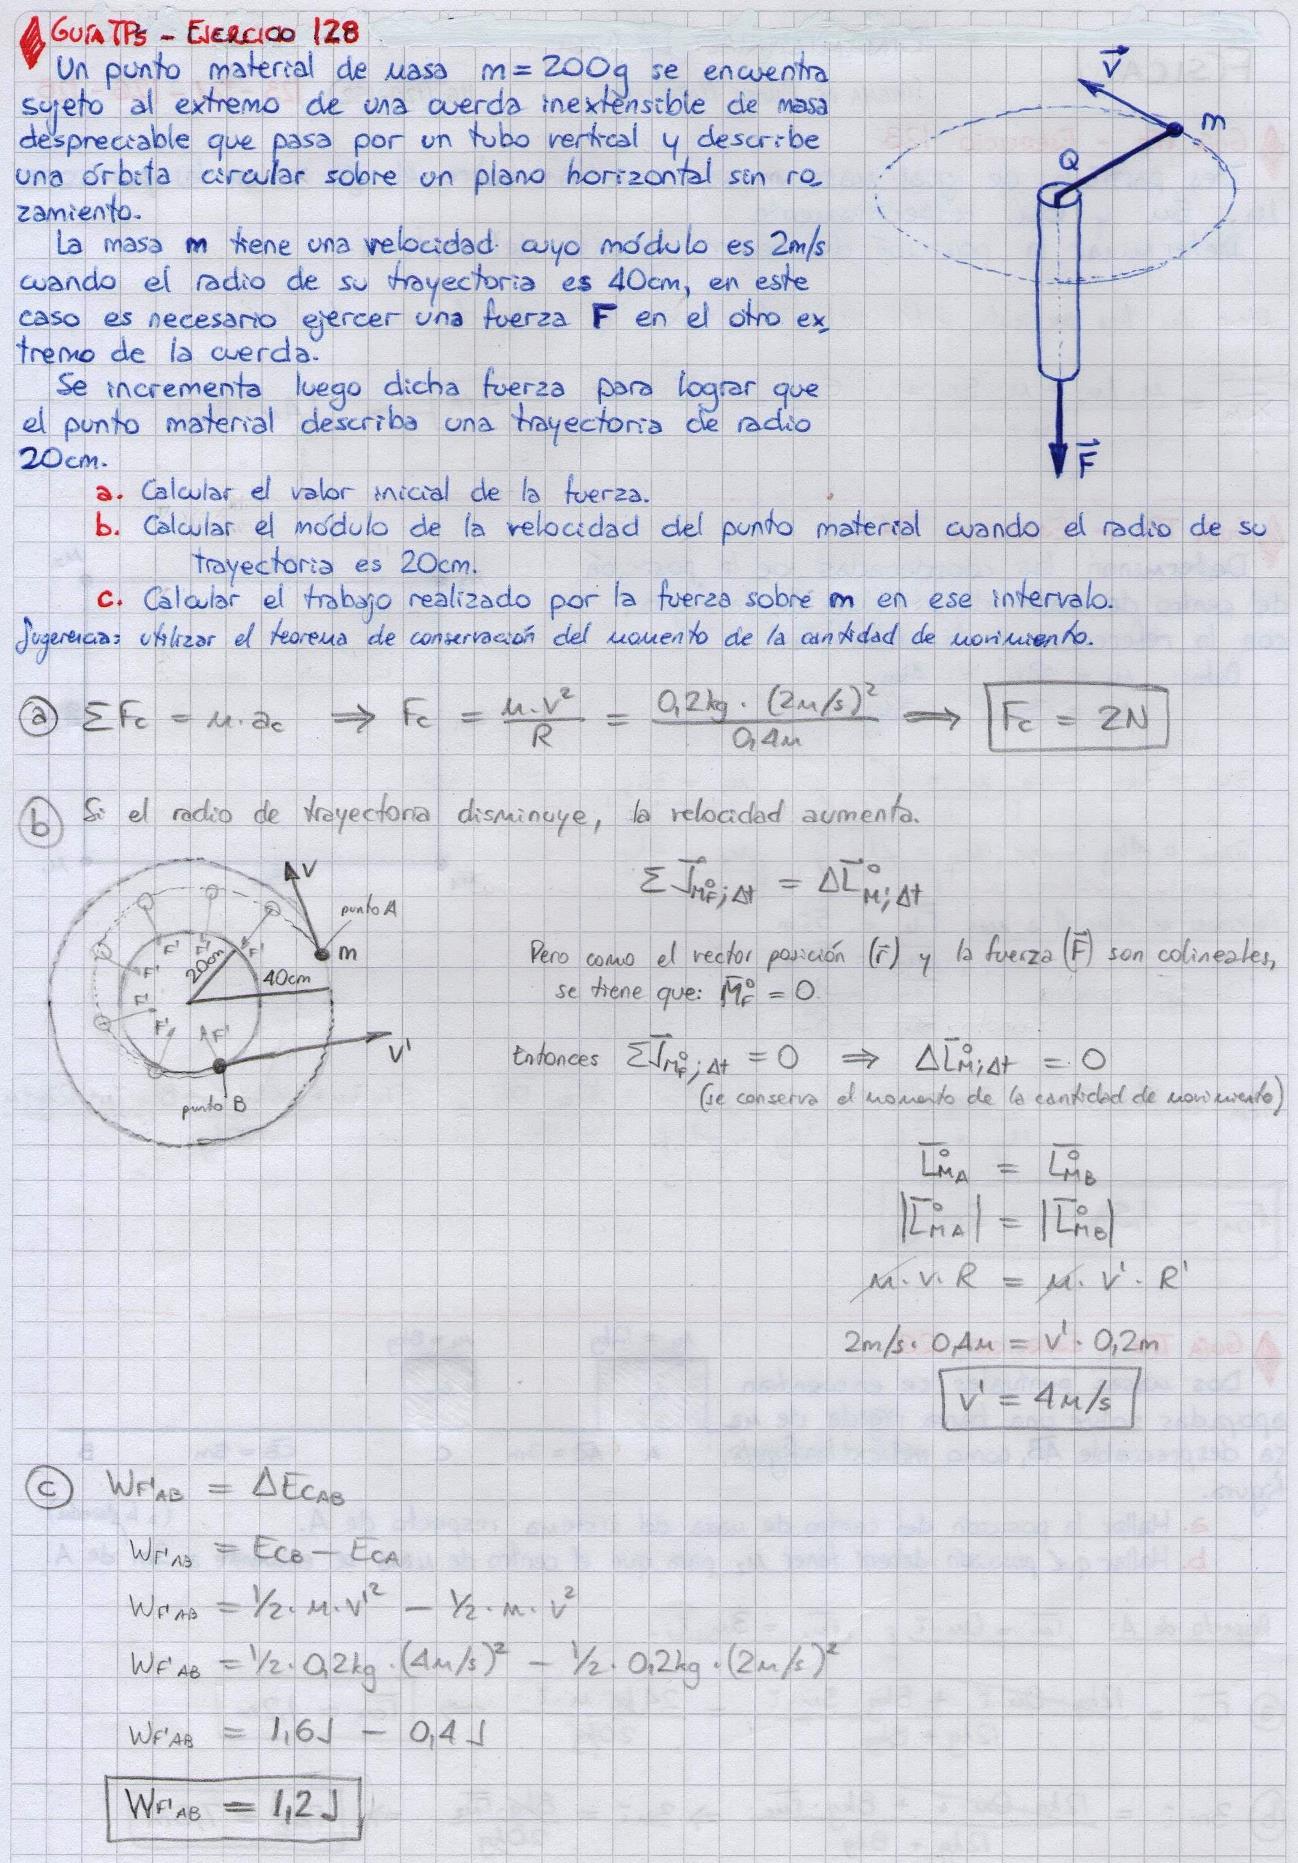 GUÍA TPs - EJERCICIO 128
Un punto material de masa m = 200g se encuentra
sujeto al extremo de una cuerda inextensible de masa
despreciable que pasa por un tubo vertical y describe
una órbita circular sobre un plano horizontal sin ro_
zamiento.
La masa m tiene una velocidad cuyo módulo es 2m/s
cuando el radio de su trayectoria es 40cm, en este
caso es necesario ejercer una fuerza F en el otro ex_
tremo de la cuerda.
Se incrementa luego dicha fuerza para lograr que
el punto material describa una trayectoria de radio
20cm.
V⃗
m
Q
F⃗
a. Calcular el valor inicial de la fuerza.
b. Calcular el módulo de la velocidad del punto material cuando el radio de su
trayectoria es 20cm.
c. Calcular el trabajo realizado por la fuerza sobre m en ese intervalo.
Sugerencia: utilizar el teorema de conservación del momento de la cantidad de movimiento.
a ΣFc = m·ac ⟹ Fc = m·v²/R = 0,2kg·(2m/s)²/0,4m ⟹ Fc = 2N
b Si el radio de trayectoria disminuye, la velocidad aumenta.
V
punto A
m
20cm
40cm
F' F' F' F' F' F' F' F'
V'
punto B
Σ J̄M°F;Δt = ΔL̄°M;Δt
Pero como el vector posición (r̄) y la fuerza (F̄) son colineales,
se tiene que: M̄°F = 0
Entonces ΣJ̄M°F;Δt = 0 ⟹ ΔL̄°M;Δt = 0
(se conserva el momento de la cantidad de movimiento)
L̄°MA = L̄°MB
|L̄°MA| = |L̄°MB|
m·v·R = m·v'·R'
2m/s·0,4m = v'·0,2m
v' = 4m/s
c WF'AB = ΔECAB
WF'AB = ECB - ECA
WF'AB = 1/2·m·v'² - 1/2·m·v²
WF'AB = 1/2·0,2kg·(4m/s)² - 1/2·0,2kg·(2m/s)²
WF'AB = 1,6J - 0,4J
WF'AB = 1,2J